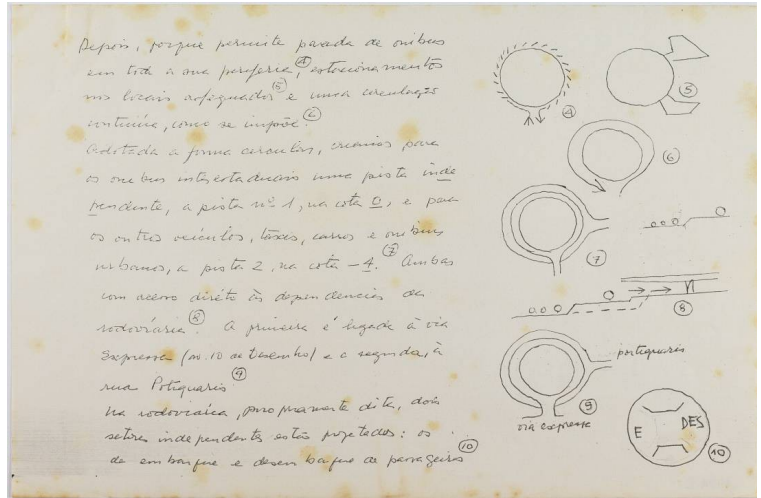 Depois, porque permite parada de onibus
em toda a sua periferia, ④ estacionamentos
nos locais adequados ⑤ e uma circulação
continúa, como se impõe. ⑥
Adotada a forma circular, criamos para
os onibus interestaduais uma pista inde
pendente, a pista nº 1, na cota 0, e para
os outros veículos, táxis, carros e onibus
urbanos, a pista 2, na cota -4. ⑦ Ambas
com acesso diréto às dependencias da
rodoviária. ⑧ A primeira é ligada à via
Expressa (no. 10 de desenho) e a segunda, à
rua Potiguaris ⑨
Na rodoviária, propriamente dita, dois
setores independentes estão projetados: os
de embarque e desembarque de passageiros ⑩
④
⑤
⑥
⑦
⑧
potiguaris
⑨
via expressa
E DES
⑩